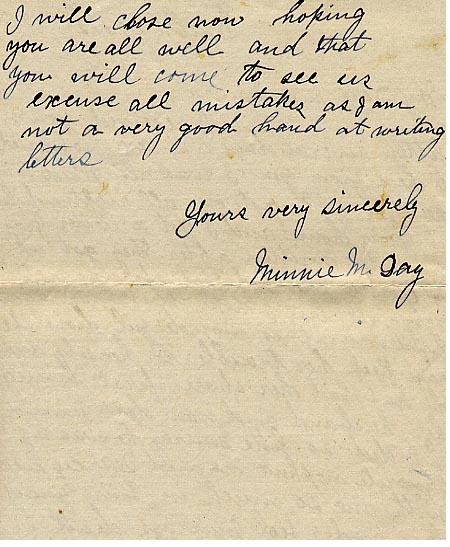 I will close now hoping
you are all well and that
you will come to see us
excuse all mistakes as I am
not a very good hand at writing
letters
Yours very sincerely
Minnie M. Day